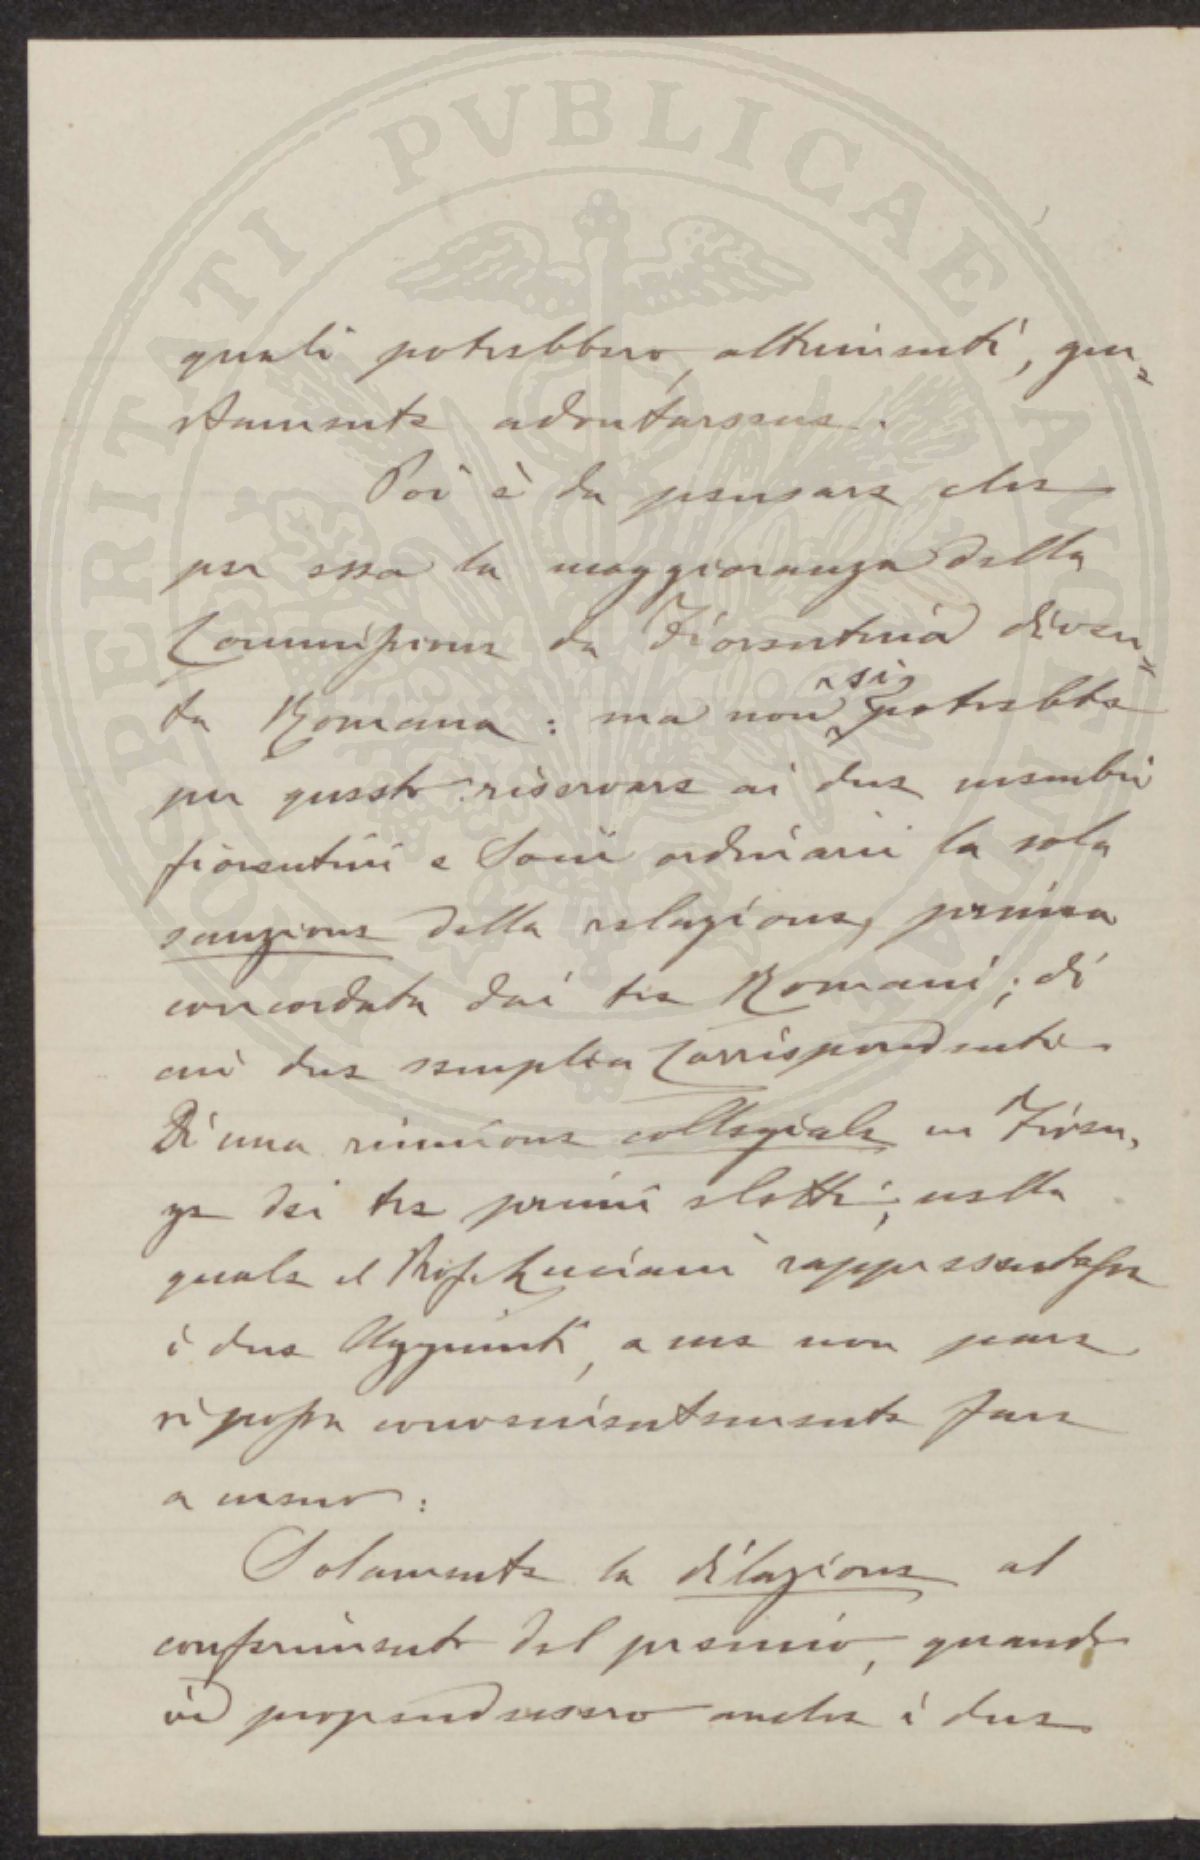 PROSPERITATI PVBLICAE
quali potrebbero, altrimenti, giu=
stamente adontarsene.
Poi è da pensare che
per essa la maggioranza della
Commissione da Fiorentina diven=
ta Romana: ma non si potrebbe
per questo riservare ai due membri
fiorentini e Socii ordinarii la sola
sanzione della relazione, prima
concordata dai tre Romani; di
cui due semplici Corrispondenti.
Di una riunione collegiale in Firen,
ze dei tre primi eletti, nella
quale il Prof. Luciani rappresentasse
i due Aggiunti, a me non pare
si possa convenientemente fare
a meno:
Solamente la dilazione al
conferimento del premio, quando
vi propendessero anche i due